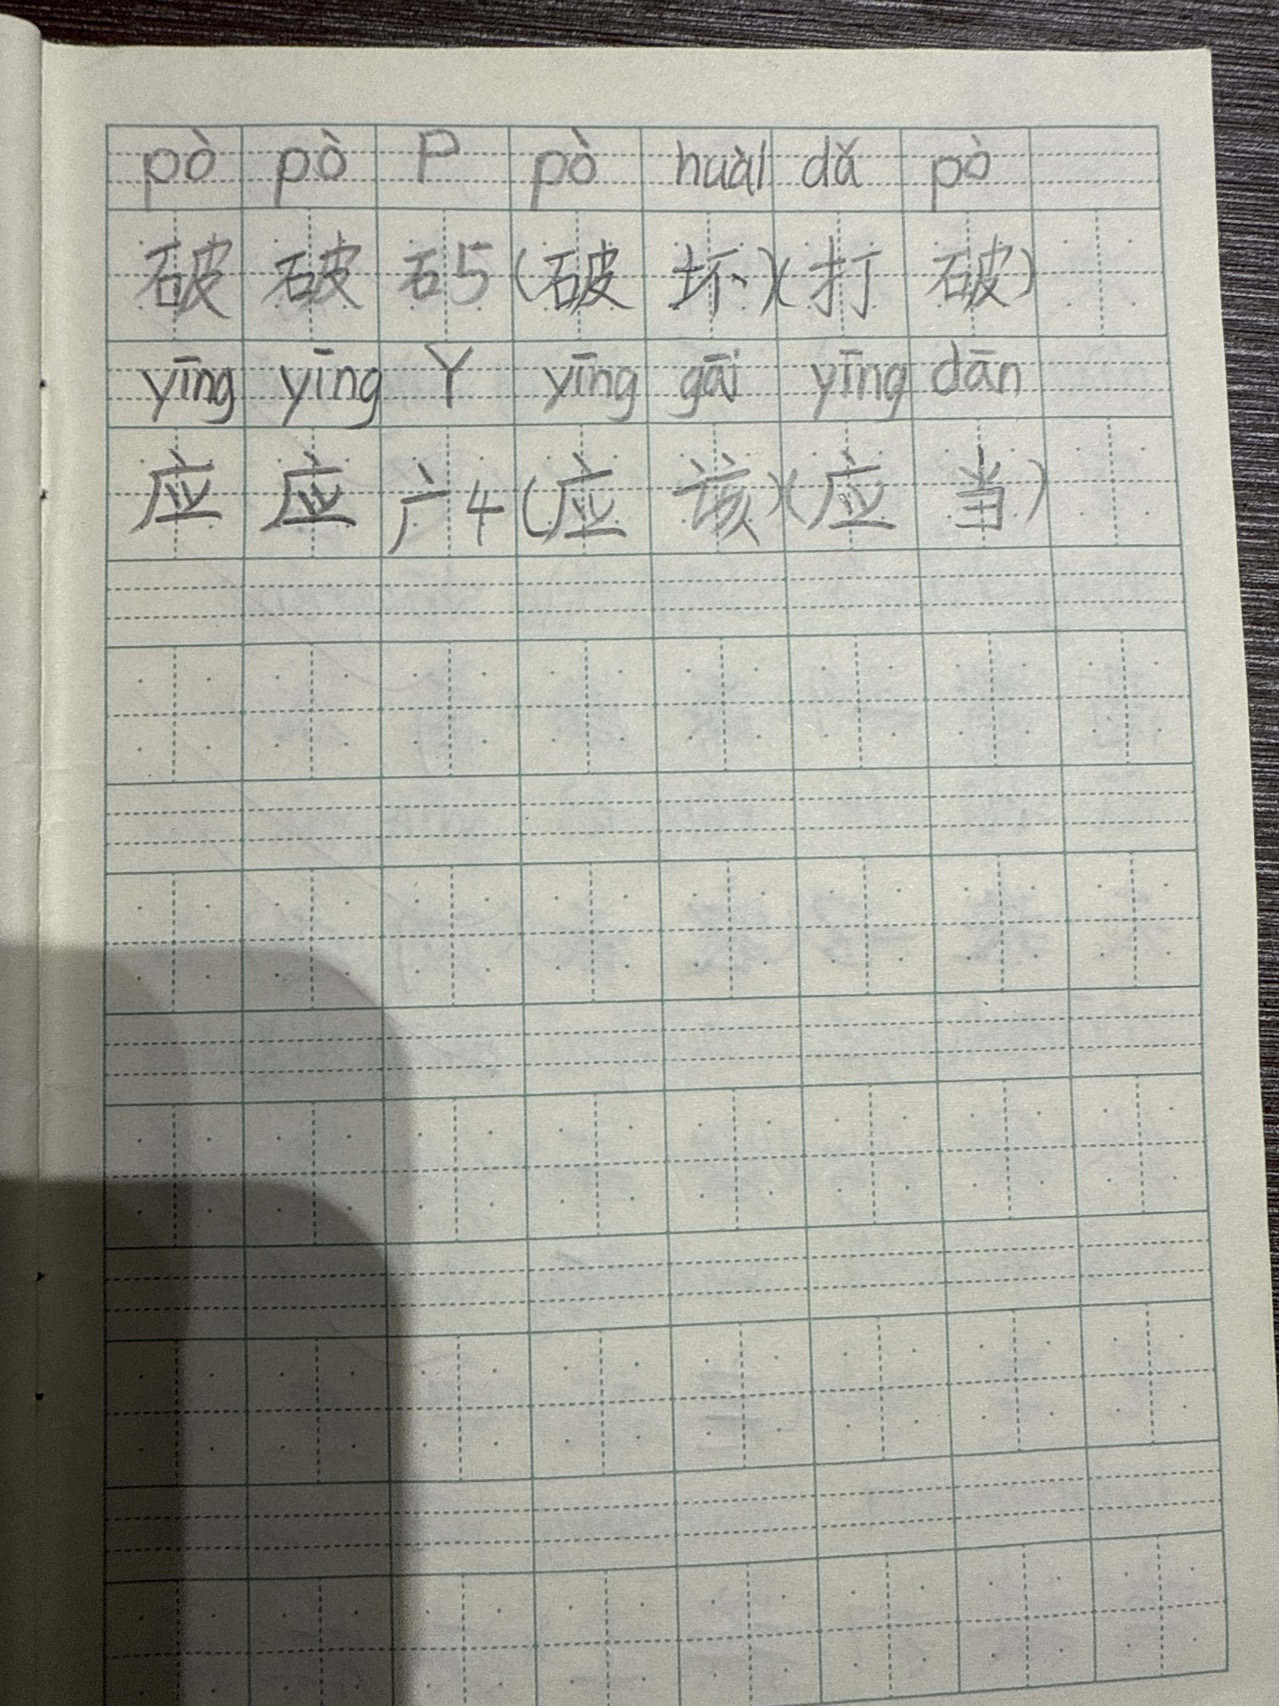 pò pò P pò huài dǎ pò
破 破 石5 (破 坏)(打 破)
yīng yīng Y yīng gāi yīng dān
应 应 广4 (应 该)(应 当)